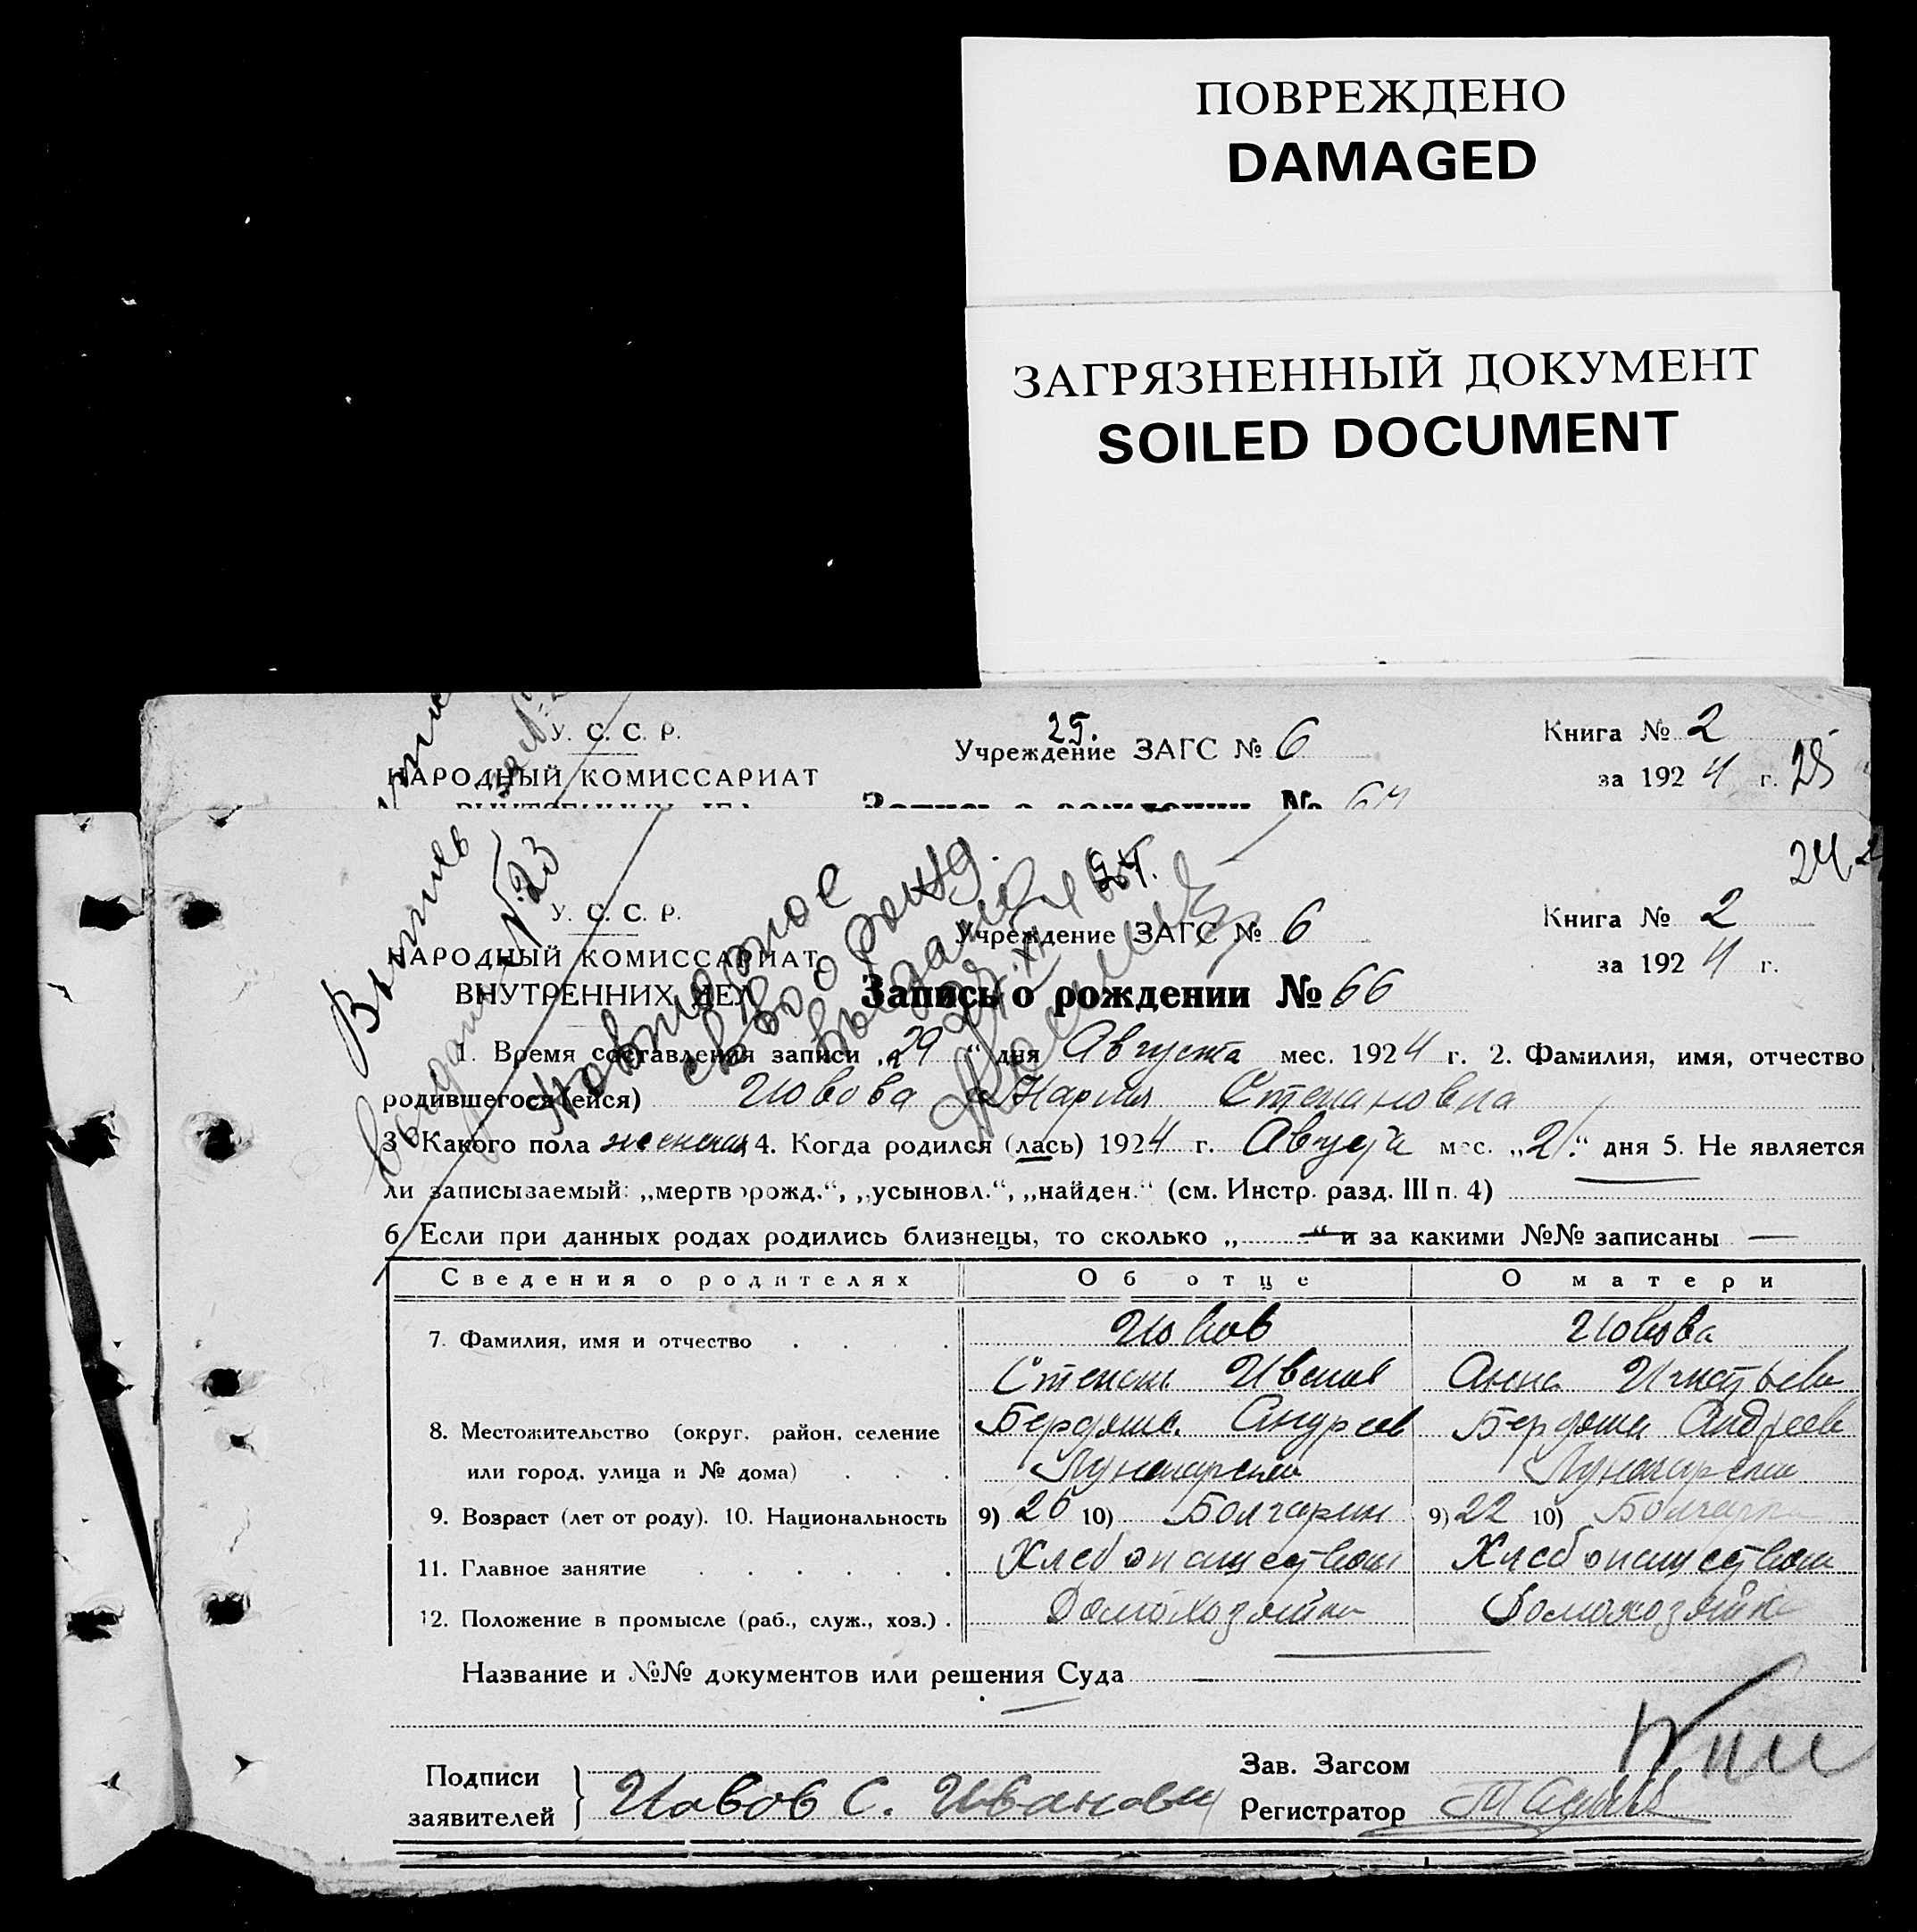 ПОВРЕЖДЕНО
DAMAGED
ЗАГРЯЗНЕННЫЙ ДОКУМЕНТ
SOILED DOCUMENT
У. С. С. Р.
НАРОДНЫЙ КОМИССАРИАТ
25.
Учреждение ЗАГС № 6
Книга № 2
за 1924 г. 25
24
Выпись
выдана
№ 23
Повторное
св-во о рожд.
выдано
У. С. С. Р.
НАРОДНЫЙ КОМИССАРИАТ
ВНУТРЕННИХ ДЕЛ
Учреждение ЗАГС № 6
Книга № 2
за 1924 г.
Запись о рождении № 66
1. Время составления записи „29“ дня Августа мес. 1924 г. 2. Фамилия, имя, отчество
родившегося(ейся) Иовова Мария Степановна
3 Какого пола женская 4. Когда родился (лась) 1924 г. Августа мес. „21“ дня 5. Не является
ли записываемый: „мертворожд.“, „усыновл.“, „найден.“ (см. Инстр. разд. III п. 4)
6 Если при данных родах родились близнецы, то сколько „ “ и за какими №№ записаны —
Сведения о родителях Об отце О матери
7. Фамилия, имя и отчество Иовов Иовова
Степан Иванов Анна Игнатьева
8. Местожительство (округ. район. селение Бердянск. Андреев Бердянск Андреев
или город, улица и № дома)
9. Возраст (лет от роду). 10. Национальность 9) 26 10) Болгарин 9) 22 10) Болгарка
11. Главное занятие Хлебопашеством Хлебопашеством
12. Положение в промысле (раб., служ., хоз.) . Домохозяин Домохозяйка
Название и №№ документов или решения Суда
Подписи
заявителей } Иовов С. Иванови
Зав. Загсом
Регистратор